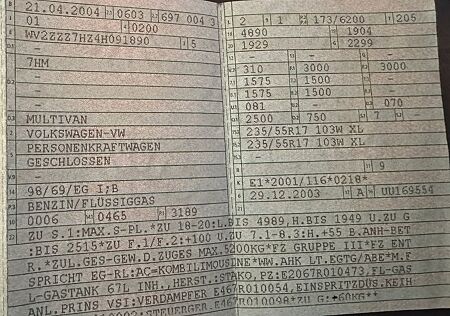 21.04.2004 0603 697 004 3
01 0200
WV2ZZZ7HZ4H091890 5
-
7HM
-
-
MULTIVAN
VOLKSWAGEN-VW
PERSONENKRAFTWAGEN
GESCHLOSSEN
-
98/69/EG I;B
BENZIN/FLÜSSIGGAS
0006 0465 3189
2 1 173/6200 205
4890 1904
1929 2299
-
310 3000 3000
1575 1500 -
1575 1500 -
081 - 070
2500 750 7 -
235/55R17 103W XL
235/55R17 103W XL
-
9
K
E1*2001/116*0218*
29.12.2003 A UU169554
ZU S.1:MAX.S-PL.*ZU 18-20:L.BIS 4989,H.BIS 1949 U.ZU G
:BIS 2515*ZU F.1/F.2:+100 U.ZU 7.1-8.3:H.+55 B.ANH-BET
R.*ZUL.GES-GEW.D.ZUGES MAX.5200KG*FZ GRUPPE III*FZ ENT
SPRICHT EG-RL:AC=KOMBILIMOUSINE*WW.AHK LT.EGTG/ABE*M.F
L-GASTANK 67L INH.,HERST.:STAKO,PZ:E2067R010473,FL-GAS
ANL.PRINS VSI:VERDAMPFER E467R010054,EINSPRITZDÜS.KEIH
STEUERGER. E467R010098*ZU G:+60KG**